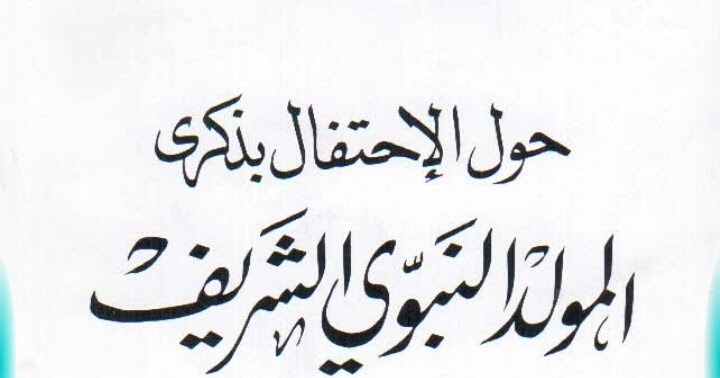 حول الإحتفال بذكرى
المولد النبوي الشريف